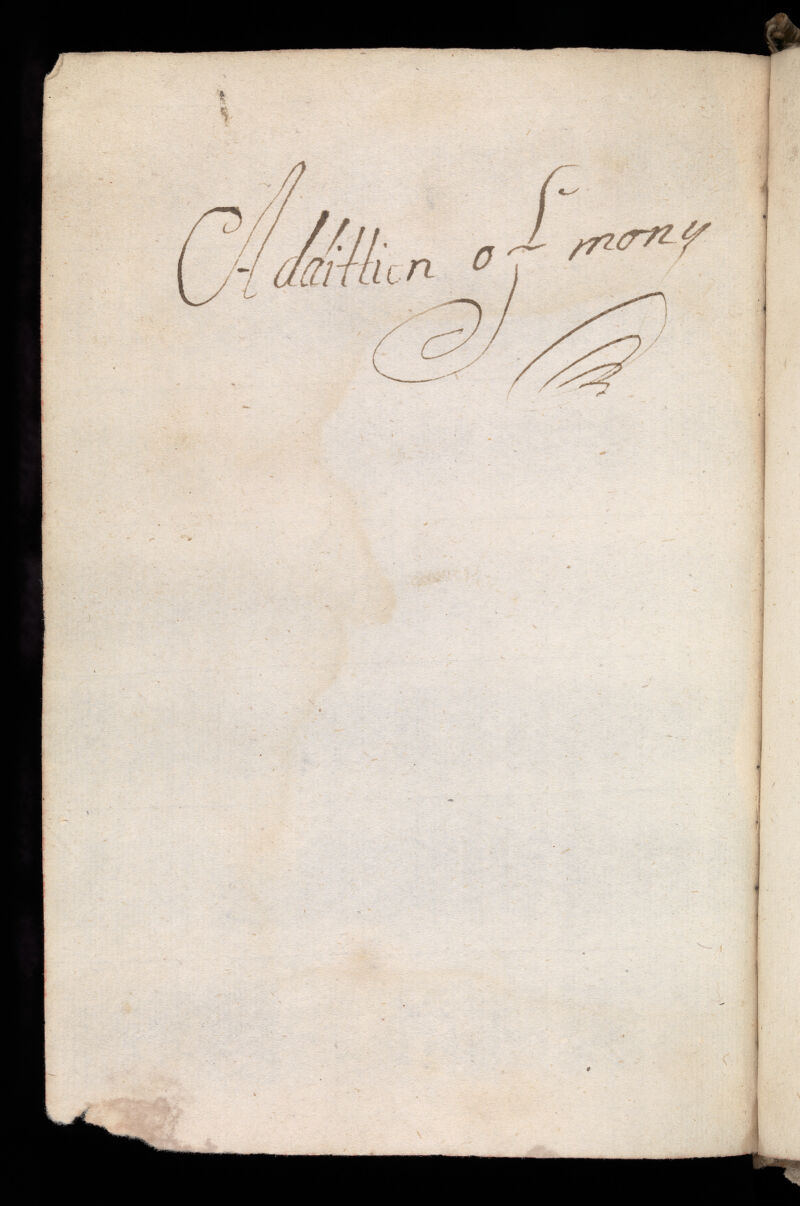 Addittion of mony